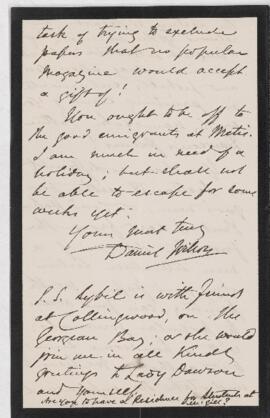 task of trying to exclude
papers that no popular
Magazine would accept
a gift of!
You ought to be off to
the good emigrants at Metis.
I am much in need of a
holiday; but shall not
be able to escape for some
weeks yet.
Yours most truly
Daniel Wilson
P.S. Sybil is with friends
at Collingwood, on the
Georgian Bay, or she would
join me in all kind
greetings to Lady Dawson
and yourself.
Are you to have a Residence for Students at
McGill?